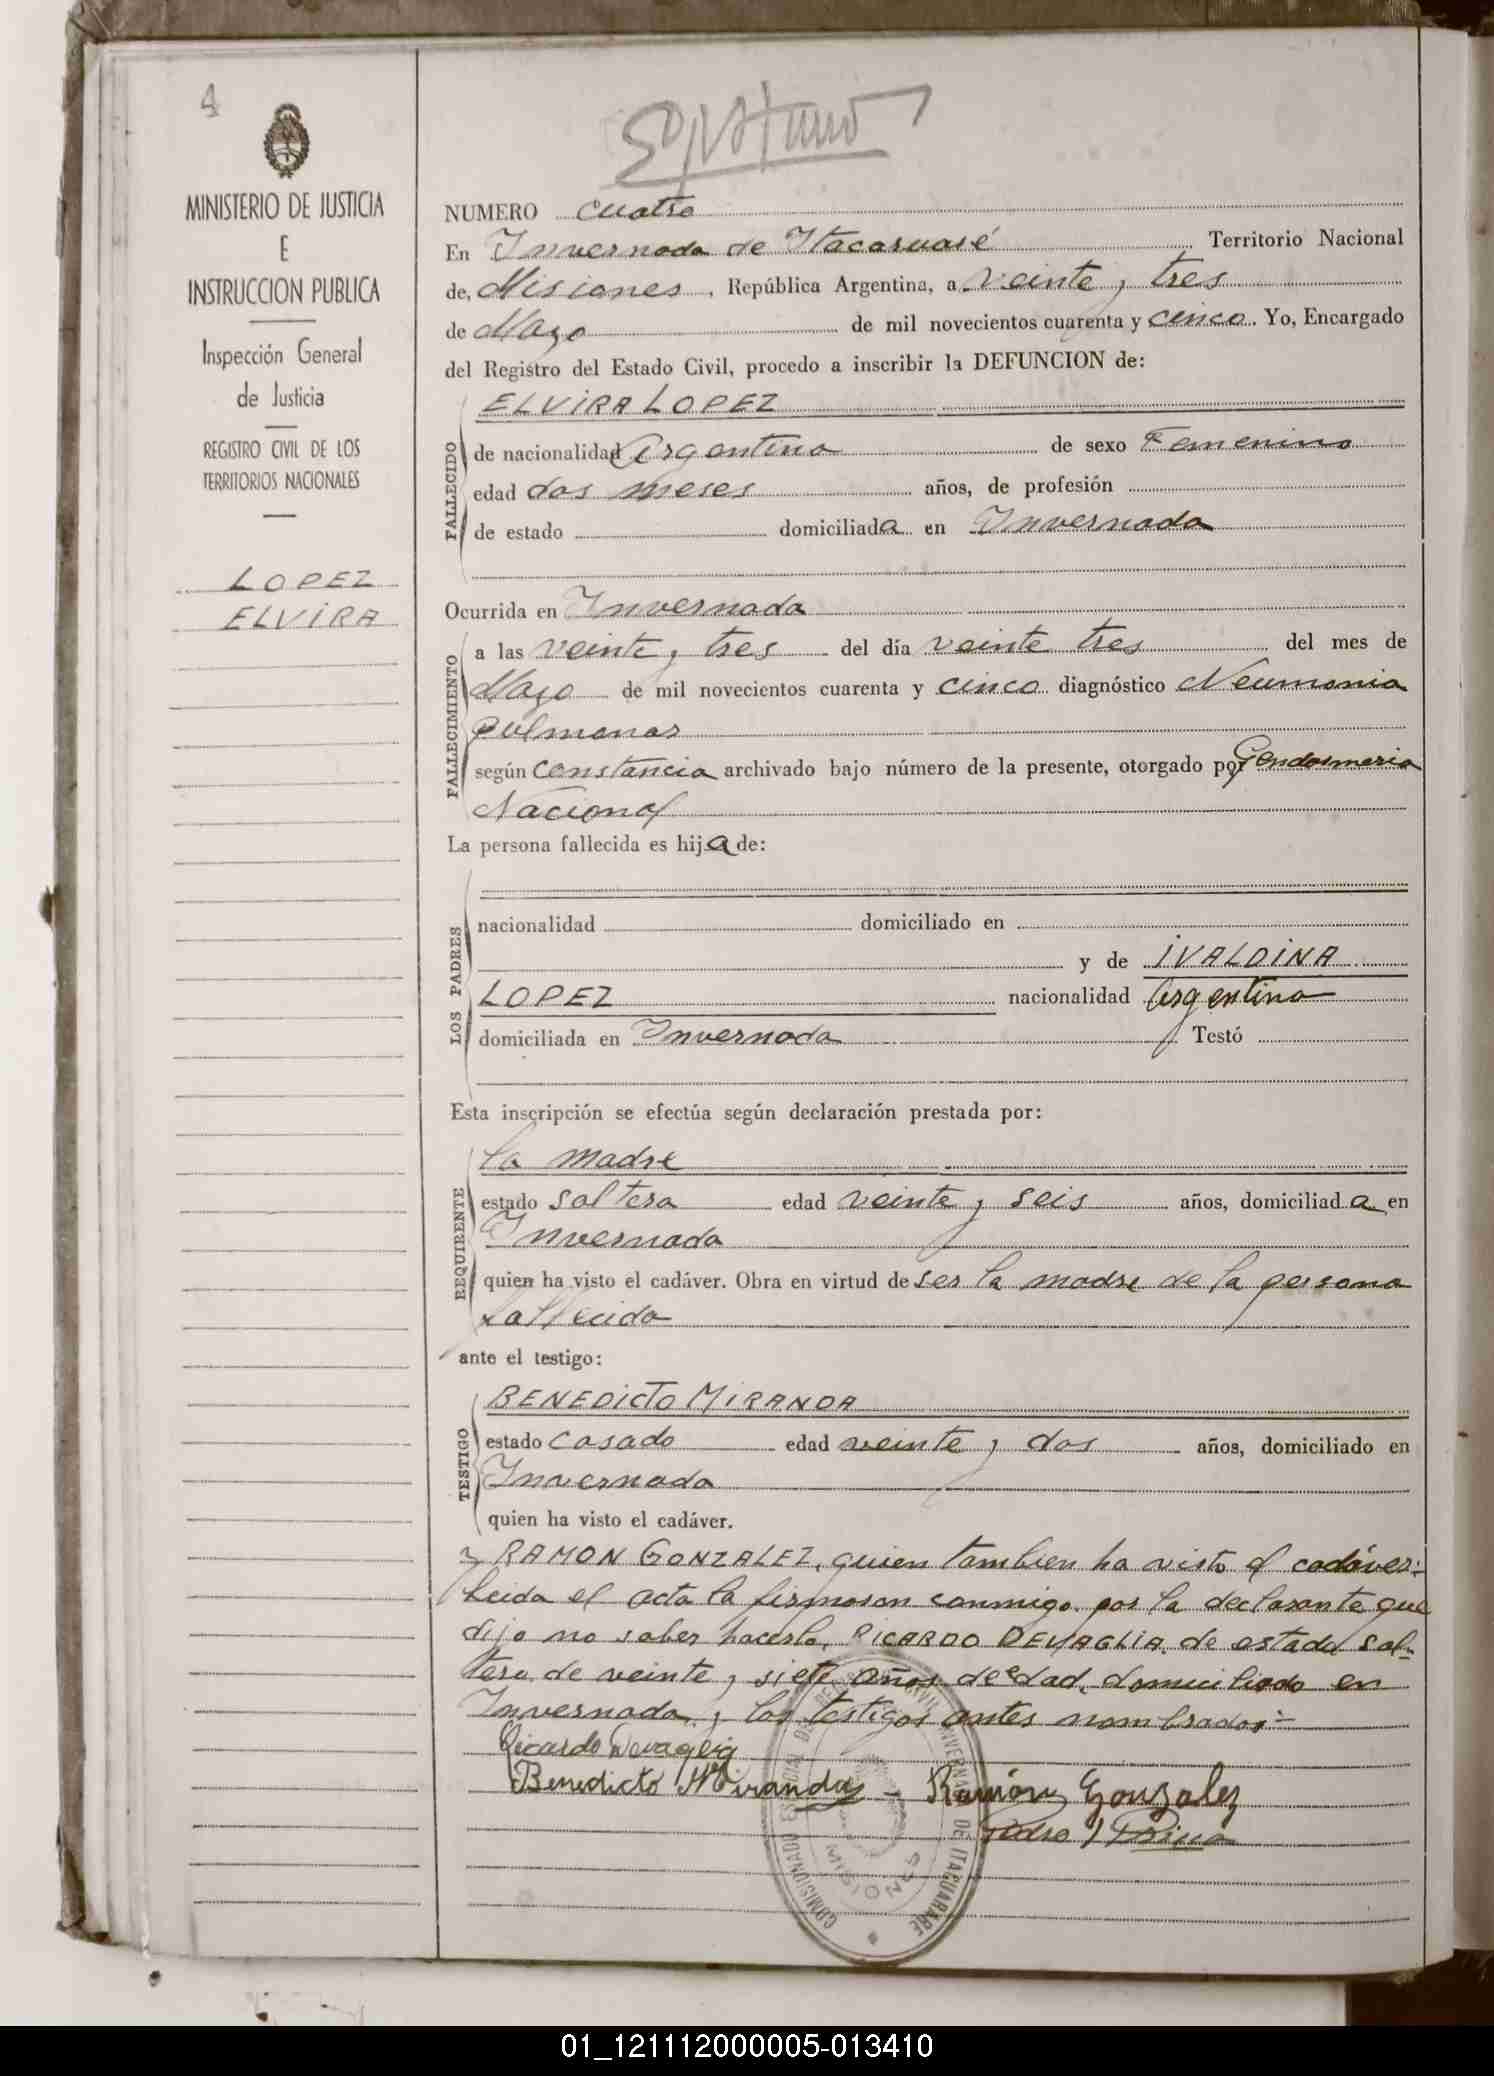 4
MINISTERIO DE JUSTICIA
E
INSTRUCCION PUBLICA
Inspección General
de Justicia
REGISTRO CIVIL DE LOS
TERRITORIOS NACIONALES
LOPEZ
ELVIRA
NUMERO cuatro
En Invernada de Itacaruaré Territorio Nacional
de, Misiones, República Argentina, a veinte y tres
de Mayo de mil novecientos cuarenta y cinco. Yo, Encargado
del Registro del Estado Civil, procedo a inscribir la DEFUNCION de:
FALLECIDO
ELVIRA LOPEZ
de nacionalidad Argentina de sexo Femenino
edad dos meses años, de profesión
de estado domiciliada en Invernada
Ocurrida en Invernada
FALLECIMIENTO
a las veinte y tres del día veinte tres del mes de
Mayo de mil novecientos cuarenta y cinco diagnóstico Neumonia
Pulmonar
según constancia archivado bajo número de la presente, otorgado por Gendarmeria
Nacional
La persona fallecida es hija de:
LOS PADRES
nacionalidad domiciliado en
y de IVALDINA
LOPEZ nacionalidad Argentina
domiciliada en Invernada Testó
Esta inscripción se efectúa según declaración prestada por:
REQUIRENTE
la madre
estado soltera edad veinte y seis años, domiciliada en
Invernada
quien ha visto el cadáver. Obra en virtud de ser la madre de la persona
fallecida
ante el testigo:
TESTIGO
BENEDICTO MIRANDA
estado casado edad veinte y dos años, domiciliado en
Invernada
quien ha visto el cadáver.
y RAMON GONZALEZ, quien tambien ha visto el cadáver:-
Leida el acta la firmaron conmigo por la declarante que
dijo no saber hacerlo, RICARDO DEVAGLIA, de estado sol-
tero de veinte y siete años de edad, domiciliado en
Invernada y los testigos antes nombrados:-
Ricardo Devaglia
Benedicto Miranda - Ramón Gonzalez
COMISIONADO ESPECIAL DEL REGISTRO CIVIL INVERNADA DE ITACUARARE
MISIONES
01_121112000005-013410